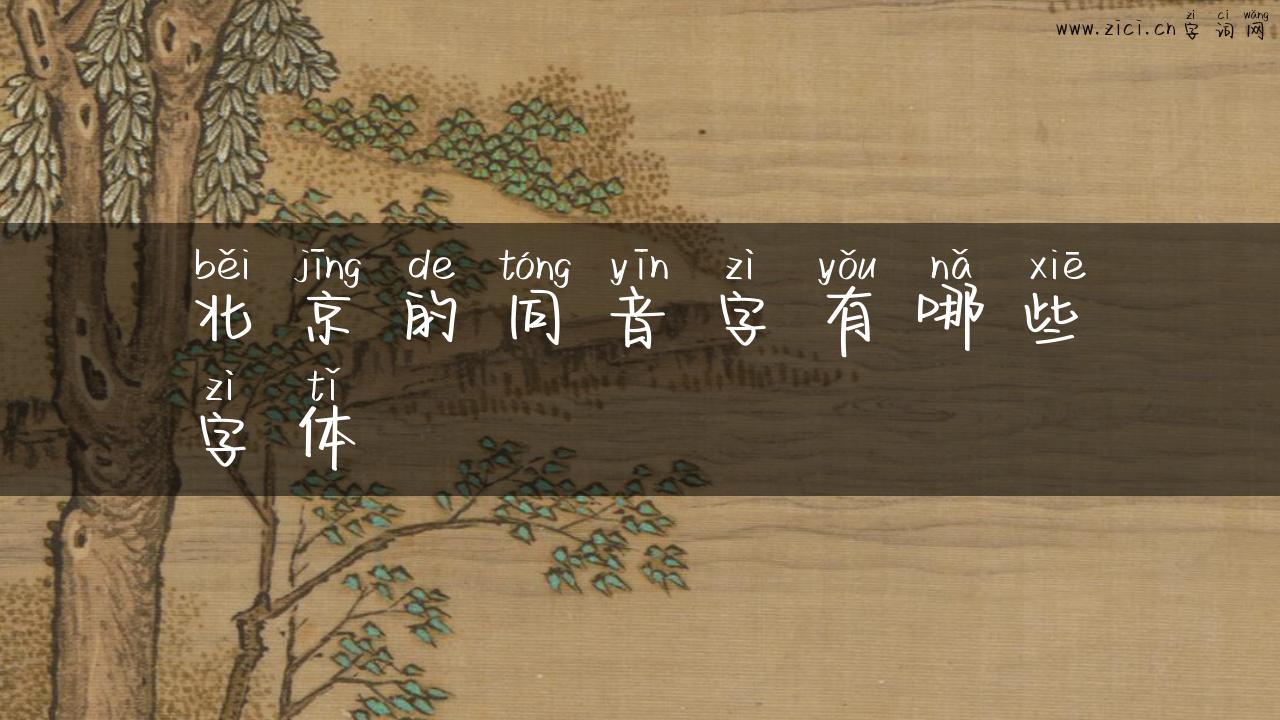 zì cí wǎng
www.zici.cn 字词网
běi jīng de tóng yīn zì yǒu nǎ xiē
北京的同音字有哪些
zì tǐ
字体